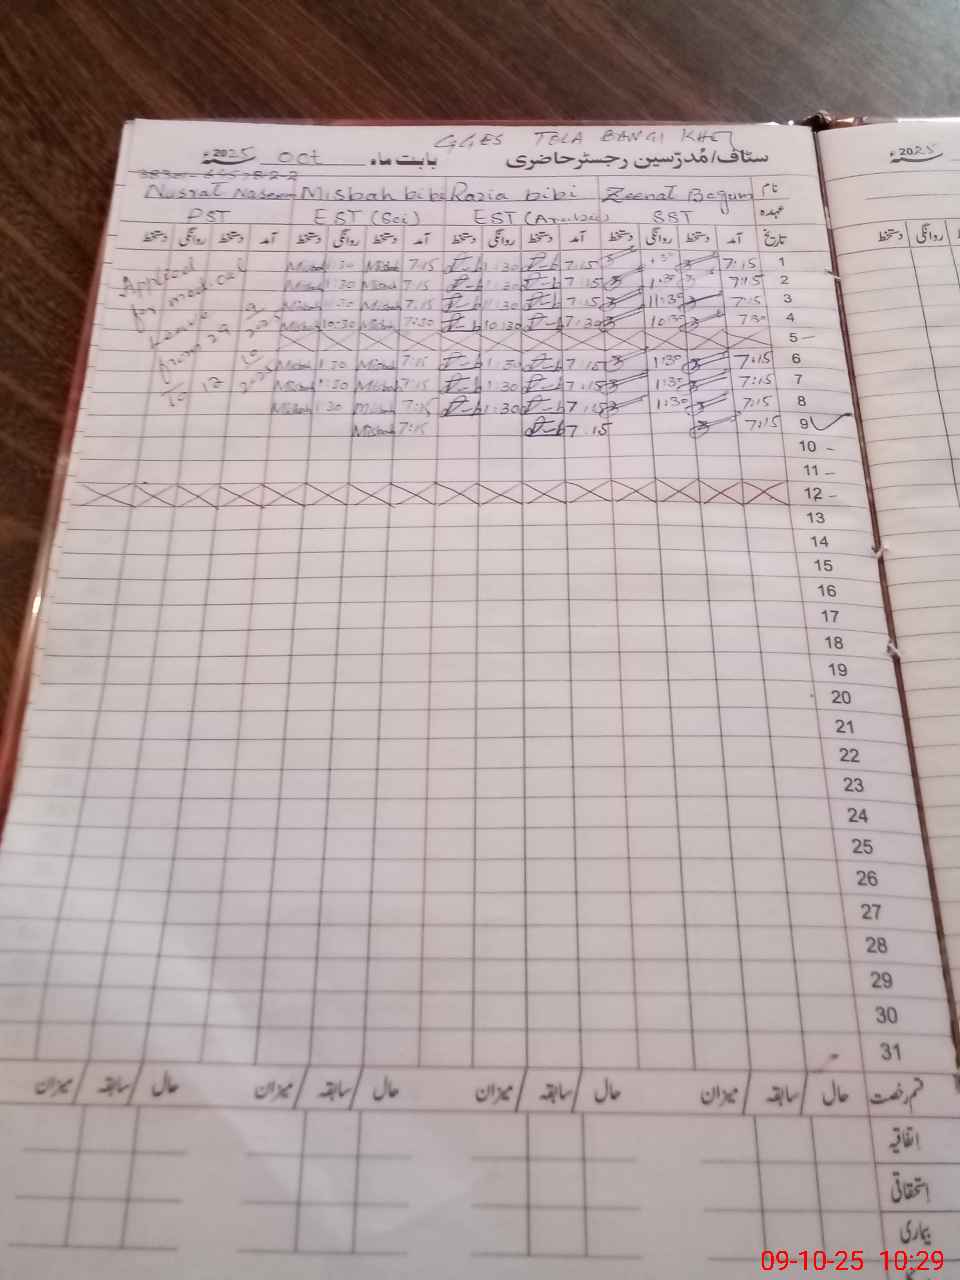 GGES TOLA BANGI KHEL
سٹاف/مُدرّسین رجسٹر حاضری بابت ماہ Oct 2025ء
2025ء
نام Zeenat Begum Razia bibi Misbah bibi Nusrat Naseem
عہدہ SST EST (Arabic) EST (Sci) PST
تاریخ آمد دستخط روانگی دستخط آمد دستخط روانگی دستخط آمد دستخط روانگی دستخط آمد دستخط روانگی دستخط
روانگی دستخط
1 7:15 7:15 1:30 7:15 Misbah 1:30 Misbah
2 7:15 1:30 7:15 1:30 7:15 Misbah 1:30 Misbah
3 7:15 11:30 7:15 11:30 7:15 Misbah 11:30 Misbah
4 7:30 10:30 7:30 10:30 7:30 Misbah 10:30 Misbah
5
6 7:15 1:30 7:15 1:30 7:15 Misbah 1:30 Misbah
7 7:15 1:30 7:15 1:30 7:15 Misbah 1:30 Misbah
8 7:15 1:30 7:15 1:30 7:15 Misbah 1:30 Misbah
9 7:15 7:15 7:15 Misbah
Applied
for medical
Leave
from 29 9 2025
To 12 10 2025
10
11
12
13
14
15
16
17
18
19
20
21
22
23
24
25
26
27
28
29
30
31
قسم رخصت حال / سابقہ / میزان حال / سابقہ / میزان حال / سابقہ / میزان حال / سابقہ / میزان
اتفاقیہ
استحقاقی
بیماری
09-10-25 10:29